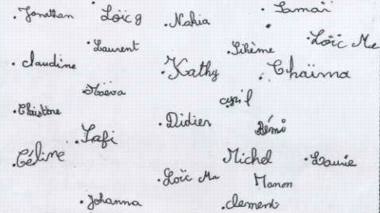 Jonathan
Loïc g
Nakia
Samaï
Laurent
Sihème
Loïc Me
claudine
Kathy
Chaïma
Maëva
cyril
Christine
Didier
Rémi
Safi
Céline
Michel
Laurie
Loïc Ma
Manon
Johanna
clement